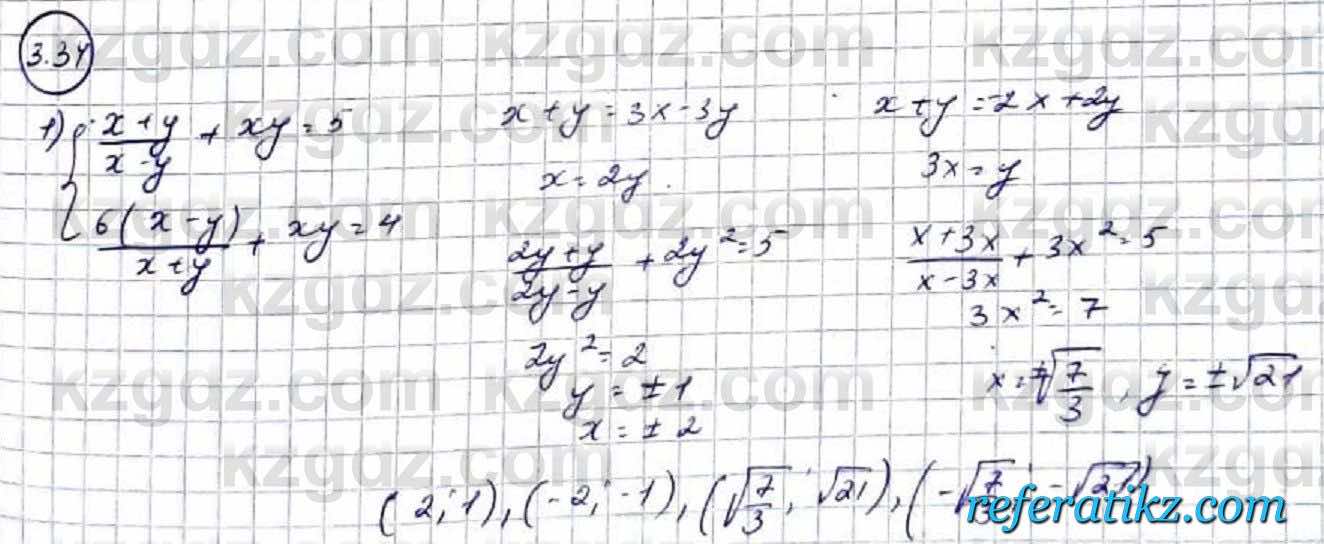 3.34
1) { (x+y)/(x-y) + xy = 5
6(x-y)/(x+y) + xy = 4
x+y = 3x-3y
x = 2y.
(2y+y)/(2y-y) + 2y² = 5
2y² = 2
y = ±1
x = ±2
x+y = -2x+2y
3x = y
(x+3x)/(x-3x) + 3x² = 5
3x² = 7
x = ±√(7/3), y = ±√21
(2; 1), (-2; -1), (√(7/3); √21), (-√(7/3); -√21)
kzgdz.com
referatikz.com